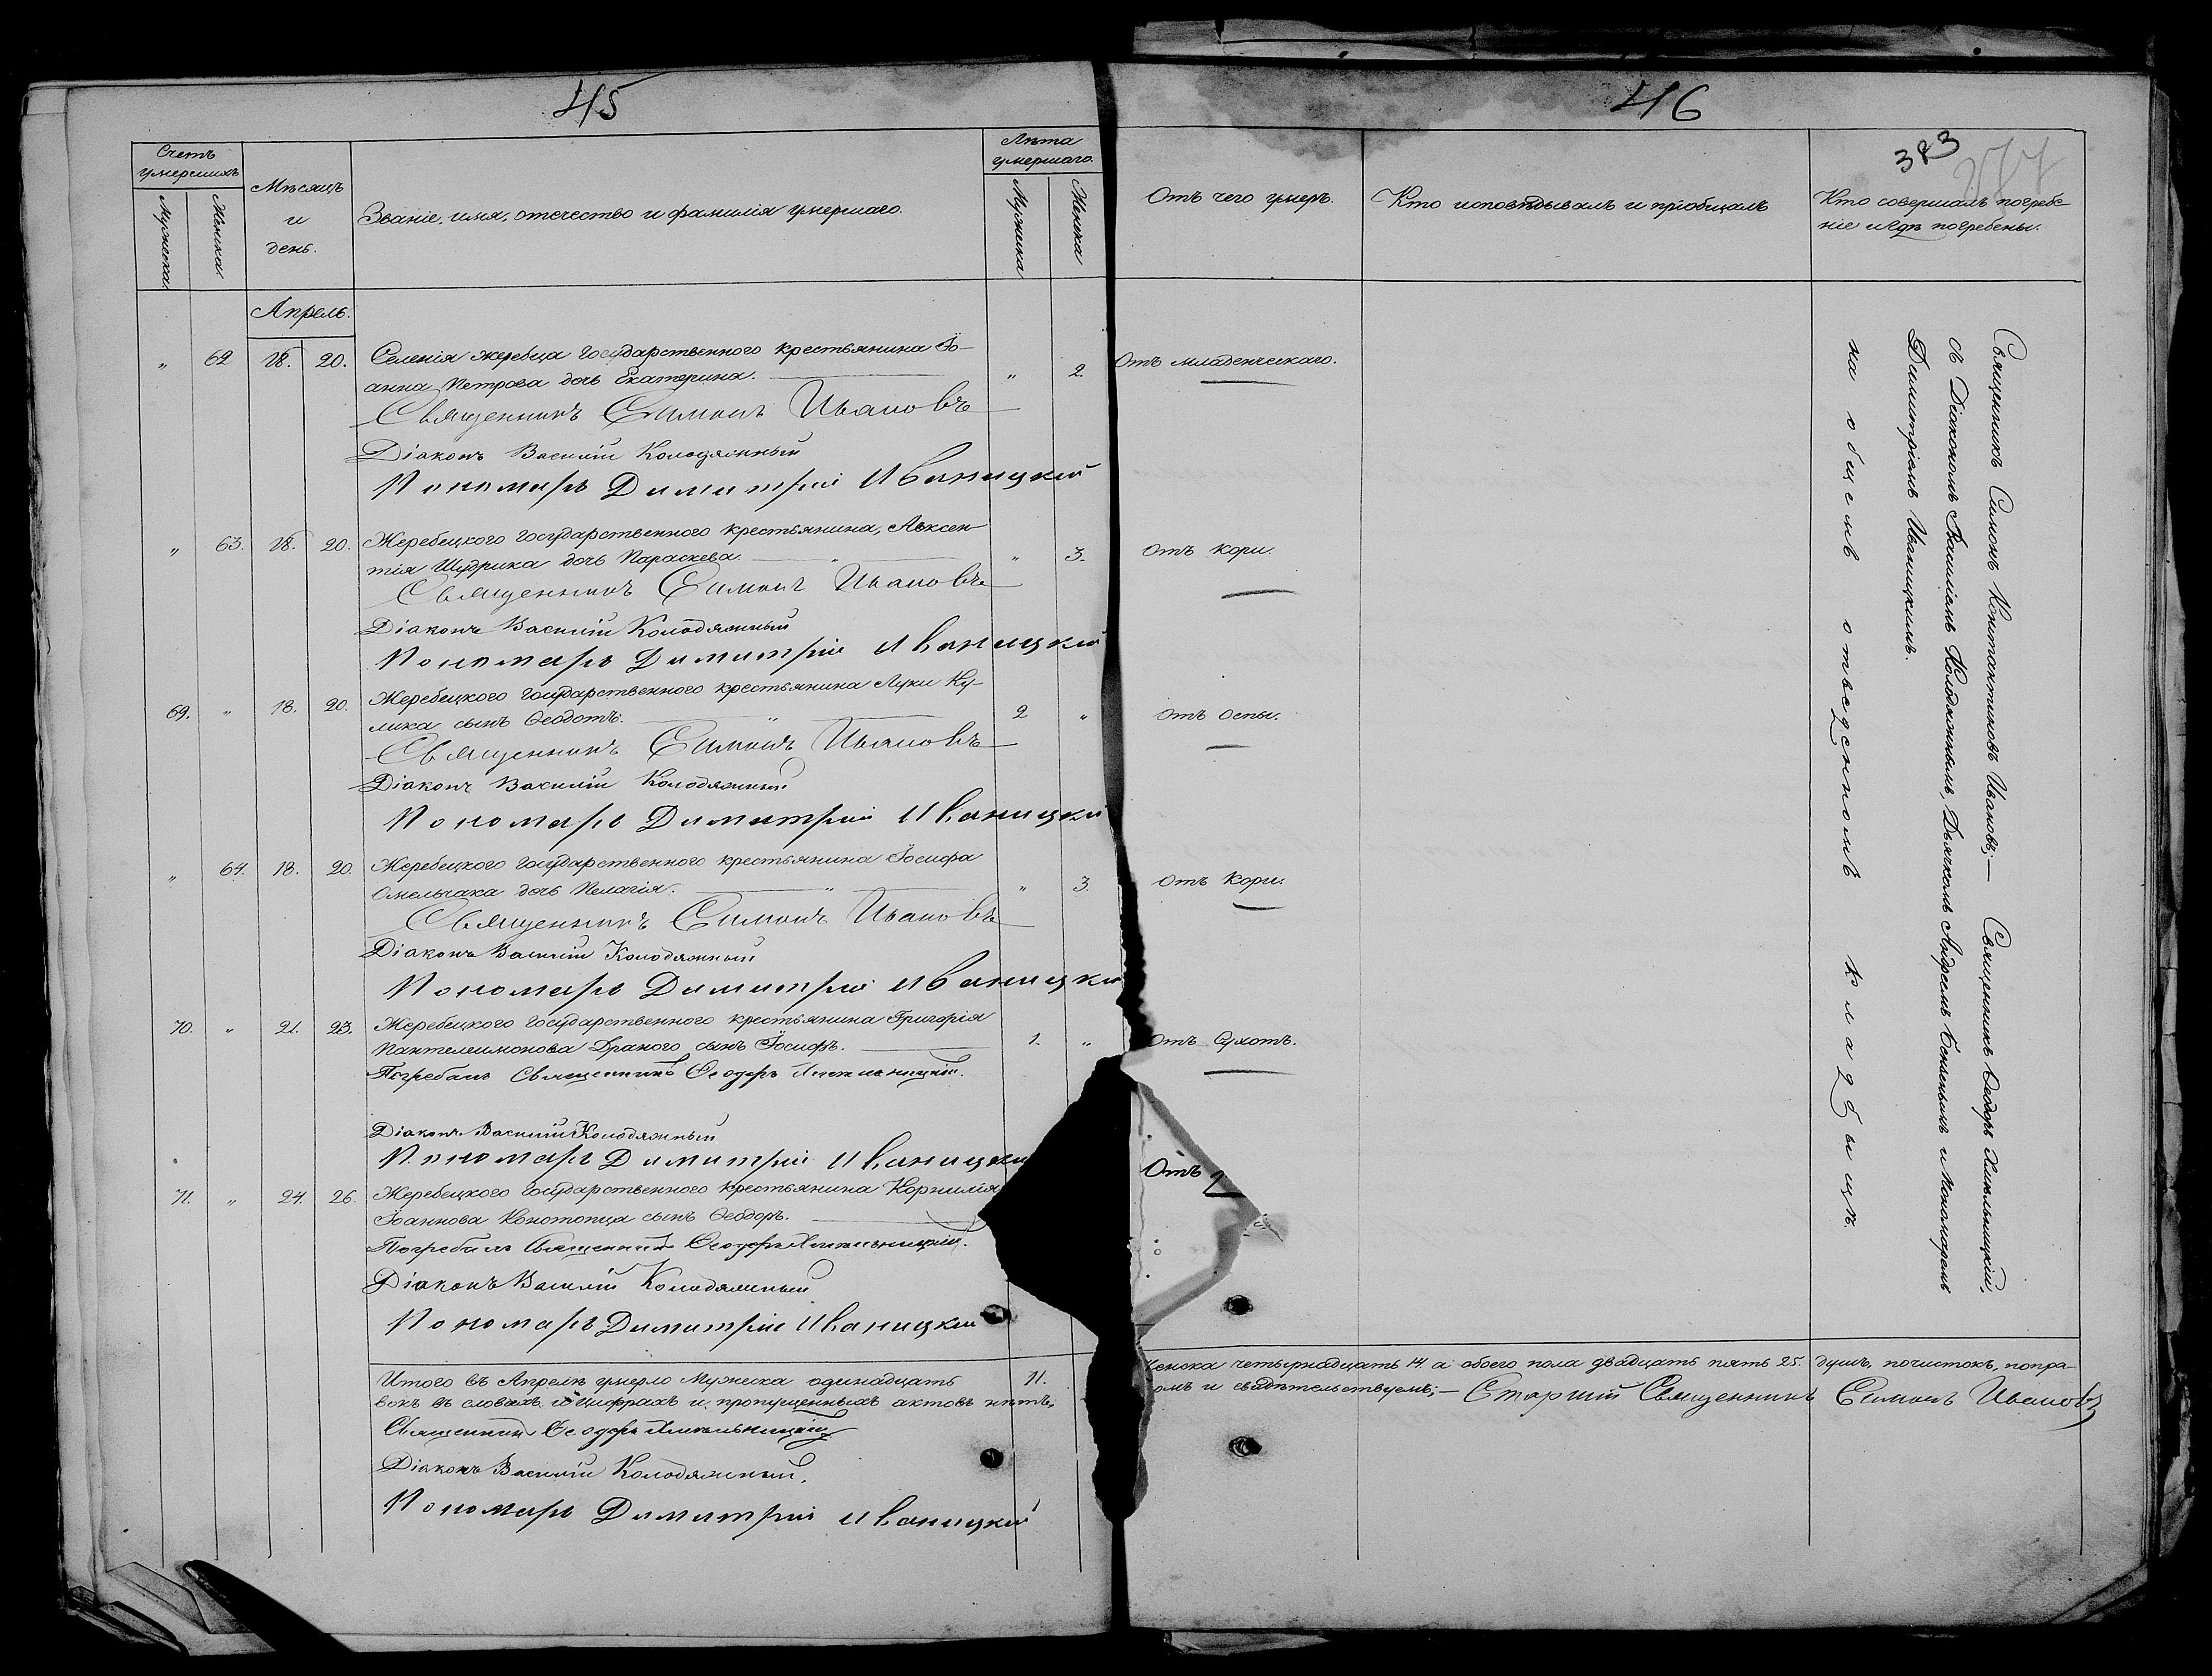 45
46
383
Счетъ умершихъ
Мужеска
Женска.
Мѣсяцъ и день.
Званіе, имя, отчество и фамилія умершаго.
Лѣта умершаго.
Мужеска
Женска
Отъ чего умеръ.
Кто исповѣдывалъ и пріобщалъ
Кто совершалъ погребе-
ніе и гдѣ погребены.
Апрель.
" 62 18. 20. Селенія жеребца государственного крестьянина Іо- " 2. Отъ младенческаго.
анна Петрова дочь Екатерина.
Священникъ Симонъ Ивановъ
Діаконъ Василій Колодяжный
Пономарь Димитрій Иваницкій
" 63. 18. 20. Жеребецкого государственного крестьянина, Авксен- " 3. Отъ кори.
тія Щудрика дочь Параскева.
Священникъ Симонъ Ивановъ
Діаконъ Василій Колодяжный
Пономарь Димитрій Иваницкій
69. " 18. 20. Жеребецкого государственного крестьянина Луки Ку- 2 " Отъ оспы.
лика сынъ Ѳеодотъ.
Священникъ Симонъ Ивановъ
Діаконъ Василій Колодяжный
Пономарь Димитрій Иваницкій
" 64. 18. 20. Жеребецкого государственного крестьянина Іосифа " 3. Отъ кори.
Омельчака дочь Пелагія.
Священникъ Симонъ Ивановъ
Діаконъ Василій Колодяжный
Пономарь Димитрій Иваницкій
70. " 21. 23. Жеребецкого государственного крестьянина Григорія 1. " Отъ сухотъ.
Пантелеимонова Драного сынъ Іосифъ.
Погребалъ Священникъ Ѳеодоръ Хмельницкій.
Діаконъ Василій Колодяжный
Пономарь Димитрій Иваницкій
71. " 24. 26. Жеребецкого государственного крестьянина Корнилія Отъ
Іоаннова Конотопца сынъ Ѳеодоръ.
Погребалъ Священникъ Ѳеодоръ Хмельницкій.
Діаконъ Василій Колодяжный
Пономарь Димитрій Иваницкій
Священникъ Симонъ Константиновъ Ивановъ;— Священникъ Ѳеодоръ Хмельницкій,
съ Діакономъ Василіемъ Колодяжнымъ, Дьячкомъ Андреемъ и Пономаремъ
Димитріемъ Иваницкимъ.
на общемъ отведенномъ кладбищѣ.
Итого въ Апрелѣ умерло Мужеска одинадцать 11. женска четырнадцать 14. а обоего пола двадцать пять 25. душъ, почистокъ, попра-
вокъ въ словахъ и цифрахъ и пропущенныхъ актовъ нѣтъ, и свидѣтельствуемъ;— Старшій Священникъ Симонъ Ивановъ
Священникъ Ѳеодоръ Хмельницкій
Діаконъ Василій Колодяжный.
Пономарь Димитрій Иваницкій